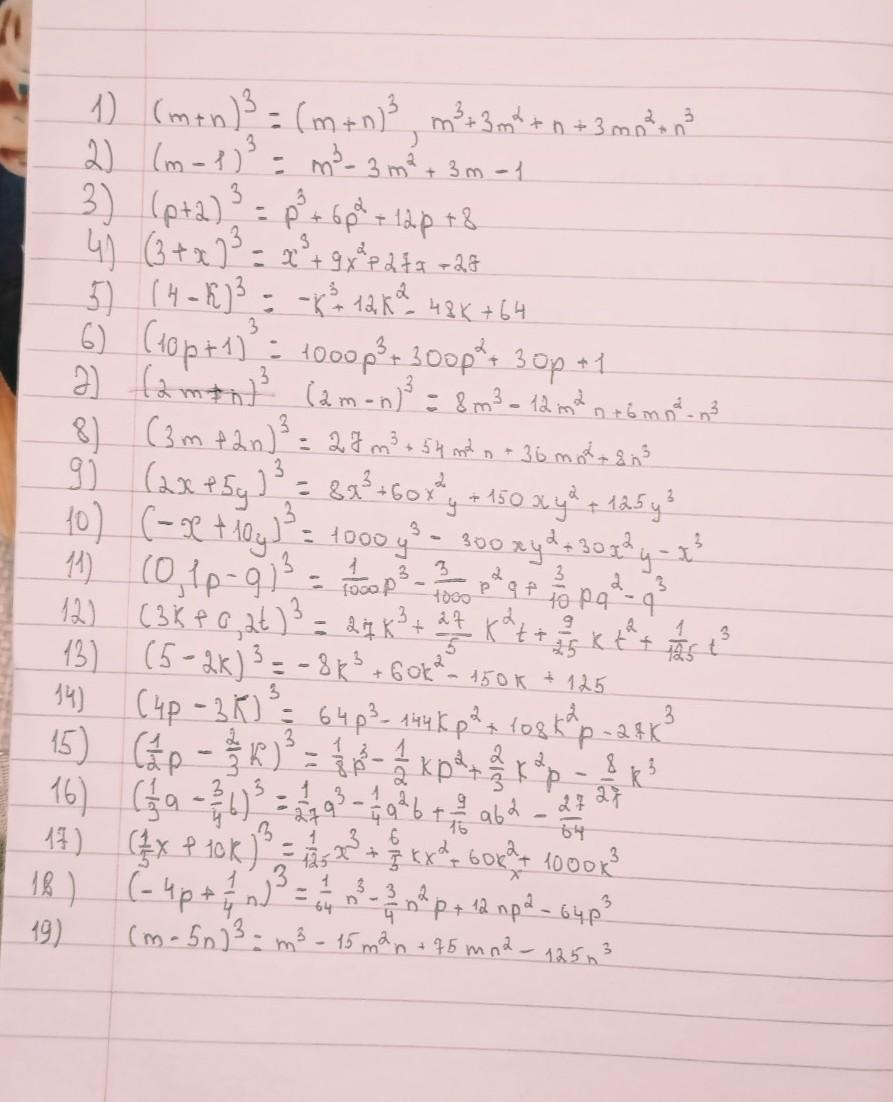 1) (m+n)³ = (m+n)³, m³+3m²+n+3mn²+n³
2) (m-1)³ = m³-3m²+3m-1
3) (p+2)³ = p³+6p²+12p+8
4) (3+x)³ = x³+9x²+27x-27
5) (4-k)³ = -k³+12k²-48k+64
6) (10p+1)³ = 1000p³+300p²+30p+1
7) (2m+n)³ (2m-n)³ = 8m³-12m²n+6mn²-n³
8) (3m+2n)³ = 27m³+54m²n+36mn²+8n³
9) (2x+5y)³ = 8x³+60x²y+150xy²+125y³
10) (-x+10y)³ = 1000y³-300xy²+30x²y-x³
11) (0,1p-q)³ = 1/1000p³-3/1000p²q+3/10pq²-q³
12) (3k+0,2t)³ = 27k³+27/5k²t+9/25kt²+1/125t³
13) (5-2k)³ = -8k³+60k²-150k+125
14) (4p-3k)³ = 64p³-144kp²+108k²p-27k³
15) (1/2p-2/3k)³ = 1/8p³-1/2kp²+2/3k²p-8/27k³
16) (1/3a-3/4b)³ = 1/27a³-1/4a²b+9/16ab²-27/64
17) (1/5x+10k)³ = 1/125x³+6/5kx²+60k²x+1000k³
18) (-4p+1/4n)³ = 1/64n³-3/4n²p+12np²-64p³
19) (m-5n)³ = m³-15m²n+75mn²-125n³